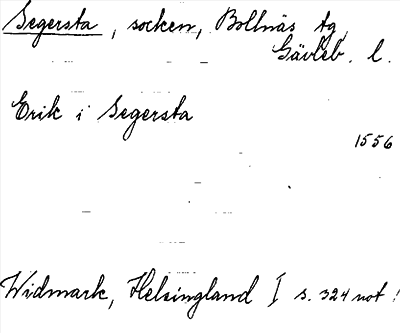 Segersta, socken, Bollnäs tg,
Gävleb. l.
Erik i Segersta
1556
Widmark, Helsingland I s. 324 not!